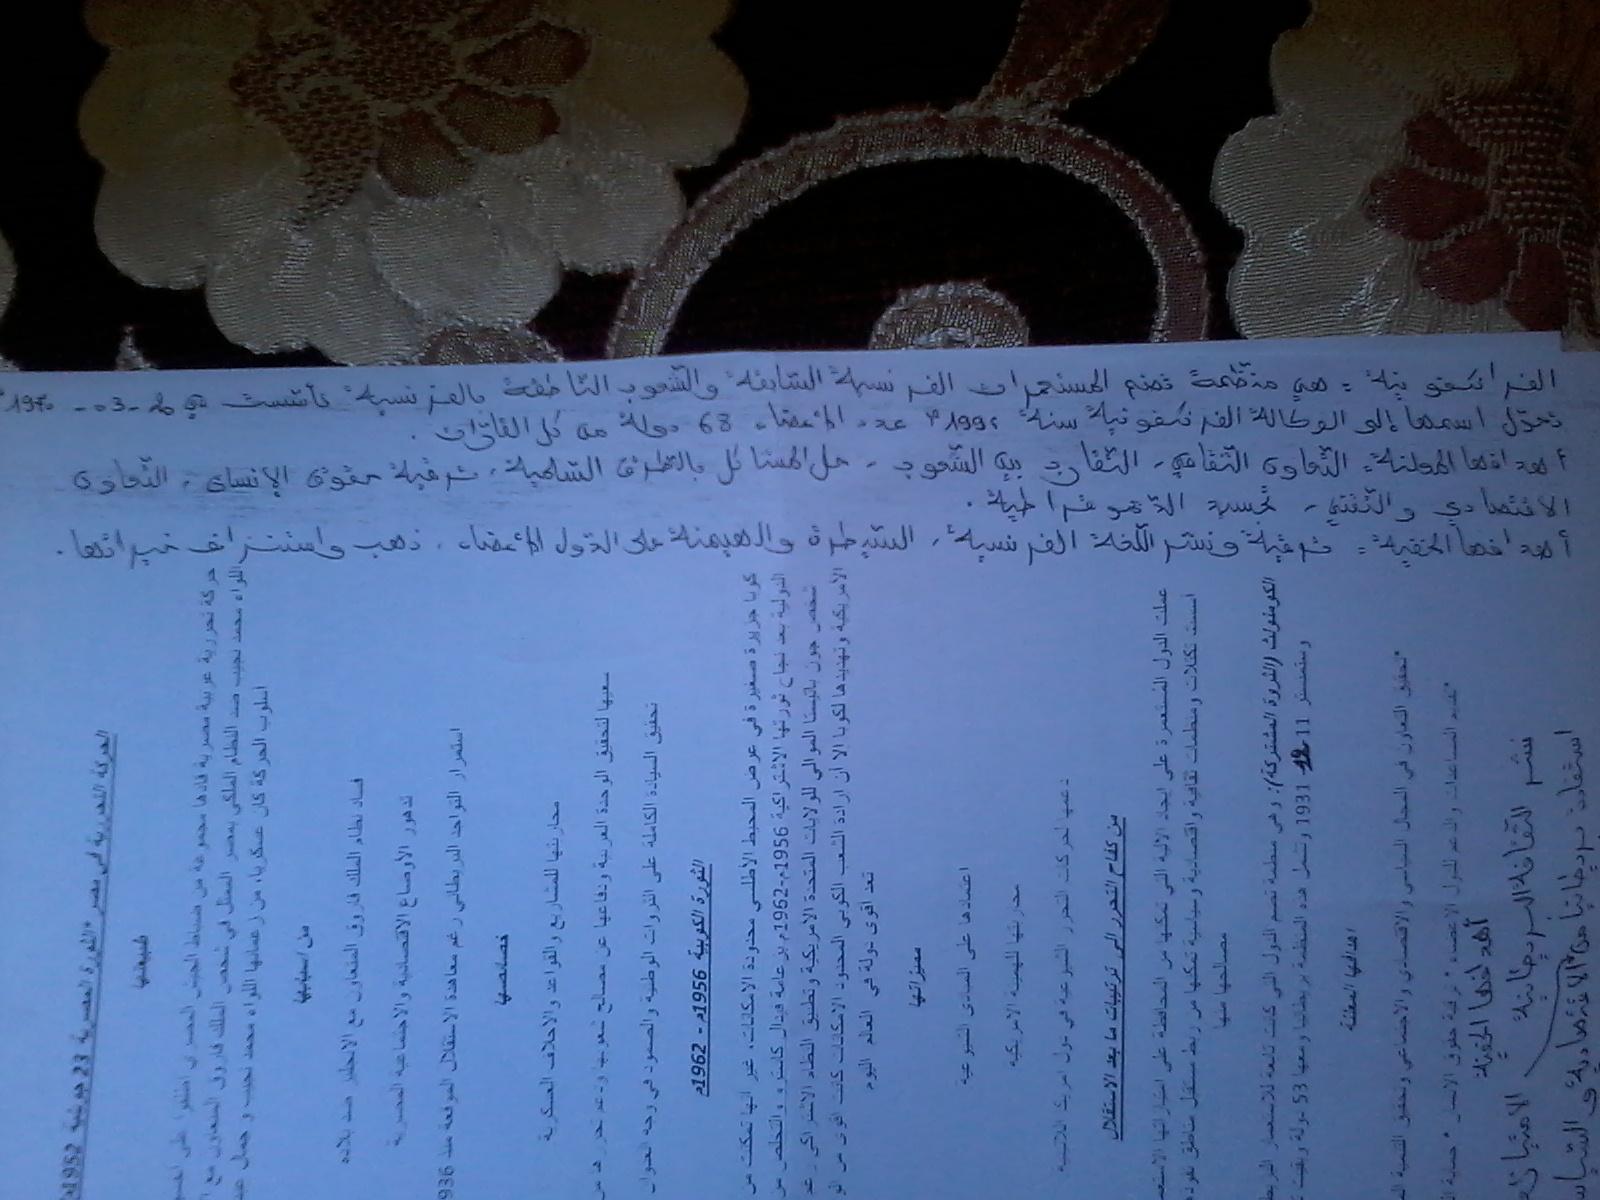 الفرانكفونية: هي منظمة تضم المستعمرات الفرنسية السابقة والشعوب الناطقة بالفرنسية تأسست في
تحوّل اسمها إلى الوكالة الفرنكفونية سنة عدد الأعضاء 68 دولة من كل القارات.
أهدافها المعلنة: التعاون الثقافي، التقارب بين الشعوب، حل المشاكل بالطرق السلمية، ترقية حقوق الإنسان، التعاون
الاقتصادي والتقني، تجسيد الديموقراطية.
أهدافها الخفية: ترقية ونشر اللغة الفرنسية، السيطرة والهيمنة على الدول الأعضاء، نهب واستنزاف خيراتها.
الحركة التحررية في مصر "الثورة المصرية 23 جويلية 1952م
طبيعتها
حركة تحررية عربية مصرية قادها مجموعة من ضباط الجيش المصري
اللواء محمد نجيب ضد النظام الملكي بمصر الممثل في شخص الملك فاروق المتعاون مع
أسلوب الحركة كان عسكريا، من زعمائها اللواء محمد نجيب و جمال
من أسبابها
فساد نظام الملك فاروق المتعاون مع الانجليز ضد بلاده
تدهور الأوضاع الاقتصادية والاجتماعية المصرية
استمرار التواجد البريطاني رغم معاهدة الاستقلال الموقعة منذ 936
خصائصها
محاربتها للمشاريع والقواعد والأحلاف العسكرية
سعيها لتحقيق الوحدة العربية ودفاعها عن مصالح شعوبها
تحقيق السيادة الكاملة على الثروات الوطنية والصمود في وجه العدوان
الثورة الكوبية 1956م - 1962م
كوبا جزيرة صغيرة في عرض المحيط الأطلسي محدودة الإمكانات، غير أنها تمكنت من
الدولية بعد نجاح ثورتها الاشتراكية 1956م-1962م بزعامة فيدال كاسترو والتخلص من
شخص جون باتيستا الموالي للولايات المتحدة الأمريكية وتطبيق النظام الاشتراكي رغم
الأمريكية وتهديدها لكوبا إلا أن إرادة الشعب الكوبي المحدود الإمكانات كانت أقوى من
تعد أقوى دولة في العالم اليوم
مميزاتها
اعتمادها على المبادئ الشيوعية
محاربتها للهيمنة الأمريكية
دعمها لحركات التحرر الشيوعية في دول أمريكا اللاتينية
من كفاح التحرر إلى ترتيبات ما بعد الاستقلال
عملت الدول المستعمرة على إيجاد الآلية التي تمكنها من المحافظة على امتيازاتها
أسست تكتلات ومنظمات ثقافية واقتصادية وسياسية تمكنها من ربط مستقبل مناطق نفوذ
مصالحها منها
الكومنولث (الثروة المشتركة): وهي منظمة تضم الدول التي كانت تابعة للاستعمار
1931 وتشمل هذه المنظمة بريطانيا ومعها 53 دولة
أهدافها المعلنة
*تحقيق التعاون في المجال السياسي والاقتصادي والاجتماعي وتحقيق التنمية
*تقديم المساعدات والدعم للدول الأعضاء * ترقية حقوق الإنسان * حماية
أهدافها الخفية
نشر الثقافة البريطانية
استفادت بريطانيا من